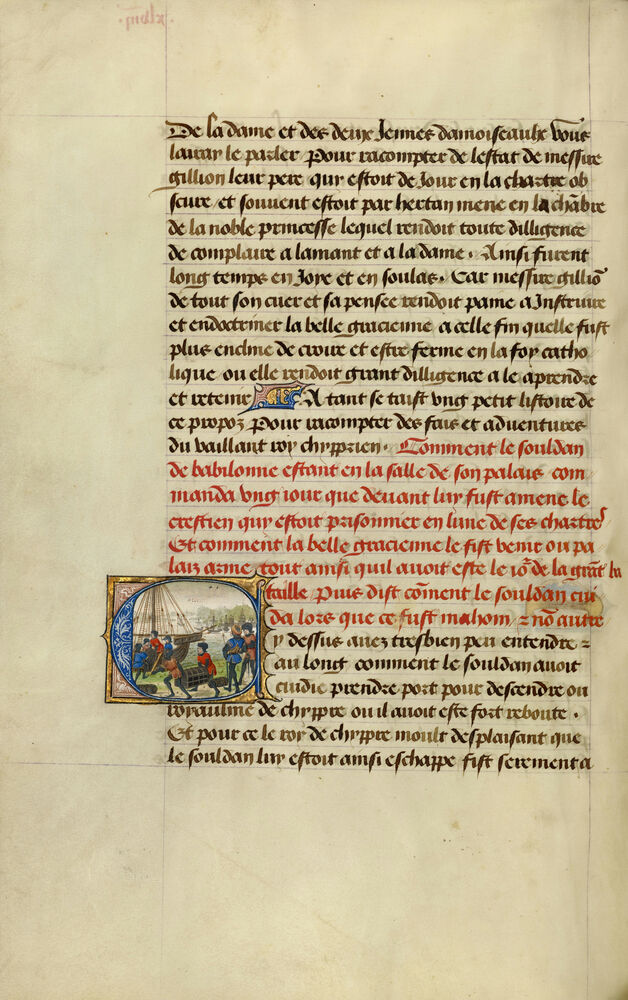 De la dame et des deux Jennes damoiseaulx vous
lairay le parler Pour racompter de lestat de messire
gillion leur pere quy estoit de Jour en la chartre ob
scure et souvent estoit par hertan mene en la chãbre
de la noble princesse lequel rendoit toute dilligence
de complaire a lamant et a la dame . Ainsi furent
long temps en Joye et en soulas . Car messire gilliõ
de tout son cuer et sa pensee rendoit paine a Instruire
et endoctriner la belle gracienne a celle fin quelle fust
plus encline de croire et estre ferme en la foy catho
lique ou elle rendoit grant dilligence a le aprendre
et retenir A tant se taist ung petit listoire de
ce propoz Pour racompter des fais et adventures
du vaillant roy chypprien . Comment le souldan
de babilonne estant en la salle de son palais com
manda ung iour que devant luy fust amene le
crestien quy estoit prisonnier en lune de ses chartres
Et comment la belle gracienne le fist venir ou pa
laiz arme tout ainsi quil avoit este le io² de la grãt ba
taille Puis dist cõment le souldan cui
da lors que ce fust mahom z nõ autre
Cy dessus avez tresbien peu entendre z
au long comment le souldan avoit
cuidie prendre port pour descendre ou
royaulme de chyppre ou il avoit este fort reboute .
Et pour ce le roy de chyppre moult desplaisant que
le souldan luy estoit ainsi eschappe fist serement a